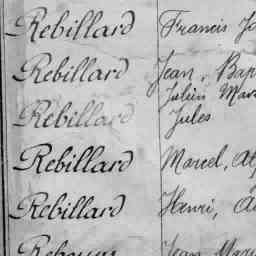 Rebillard Francis
Rebillard Jean, Bap
Julien Mar
Rebillard Jules
Rebillard Marcel, Al
Rebillard Henri, A
Jean Mar